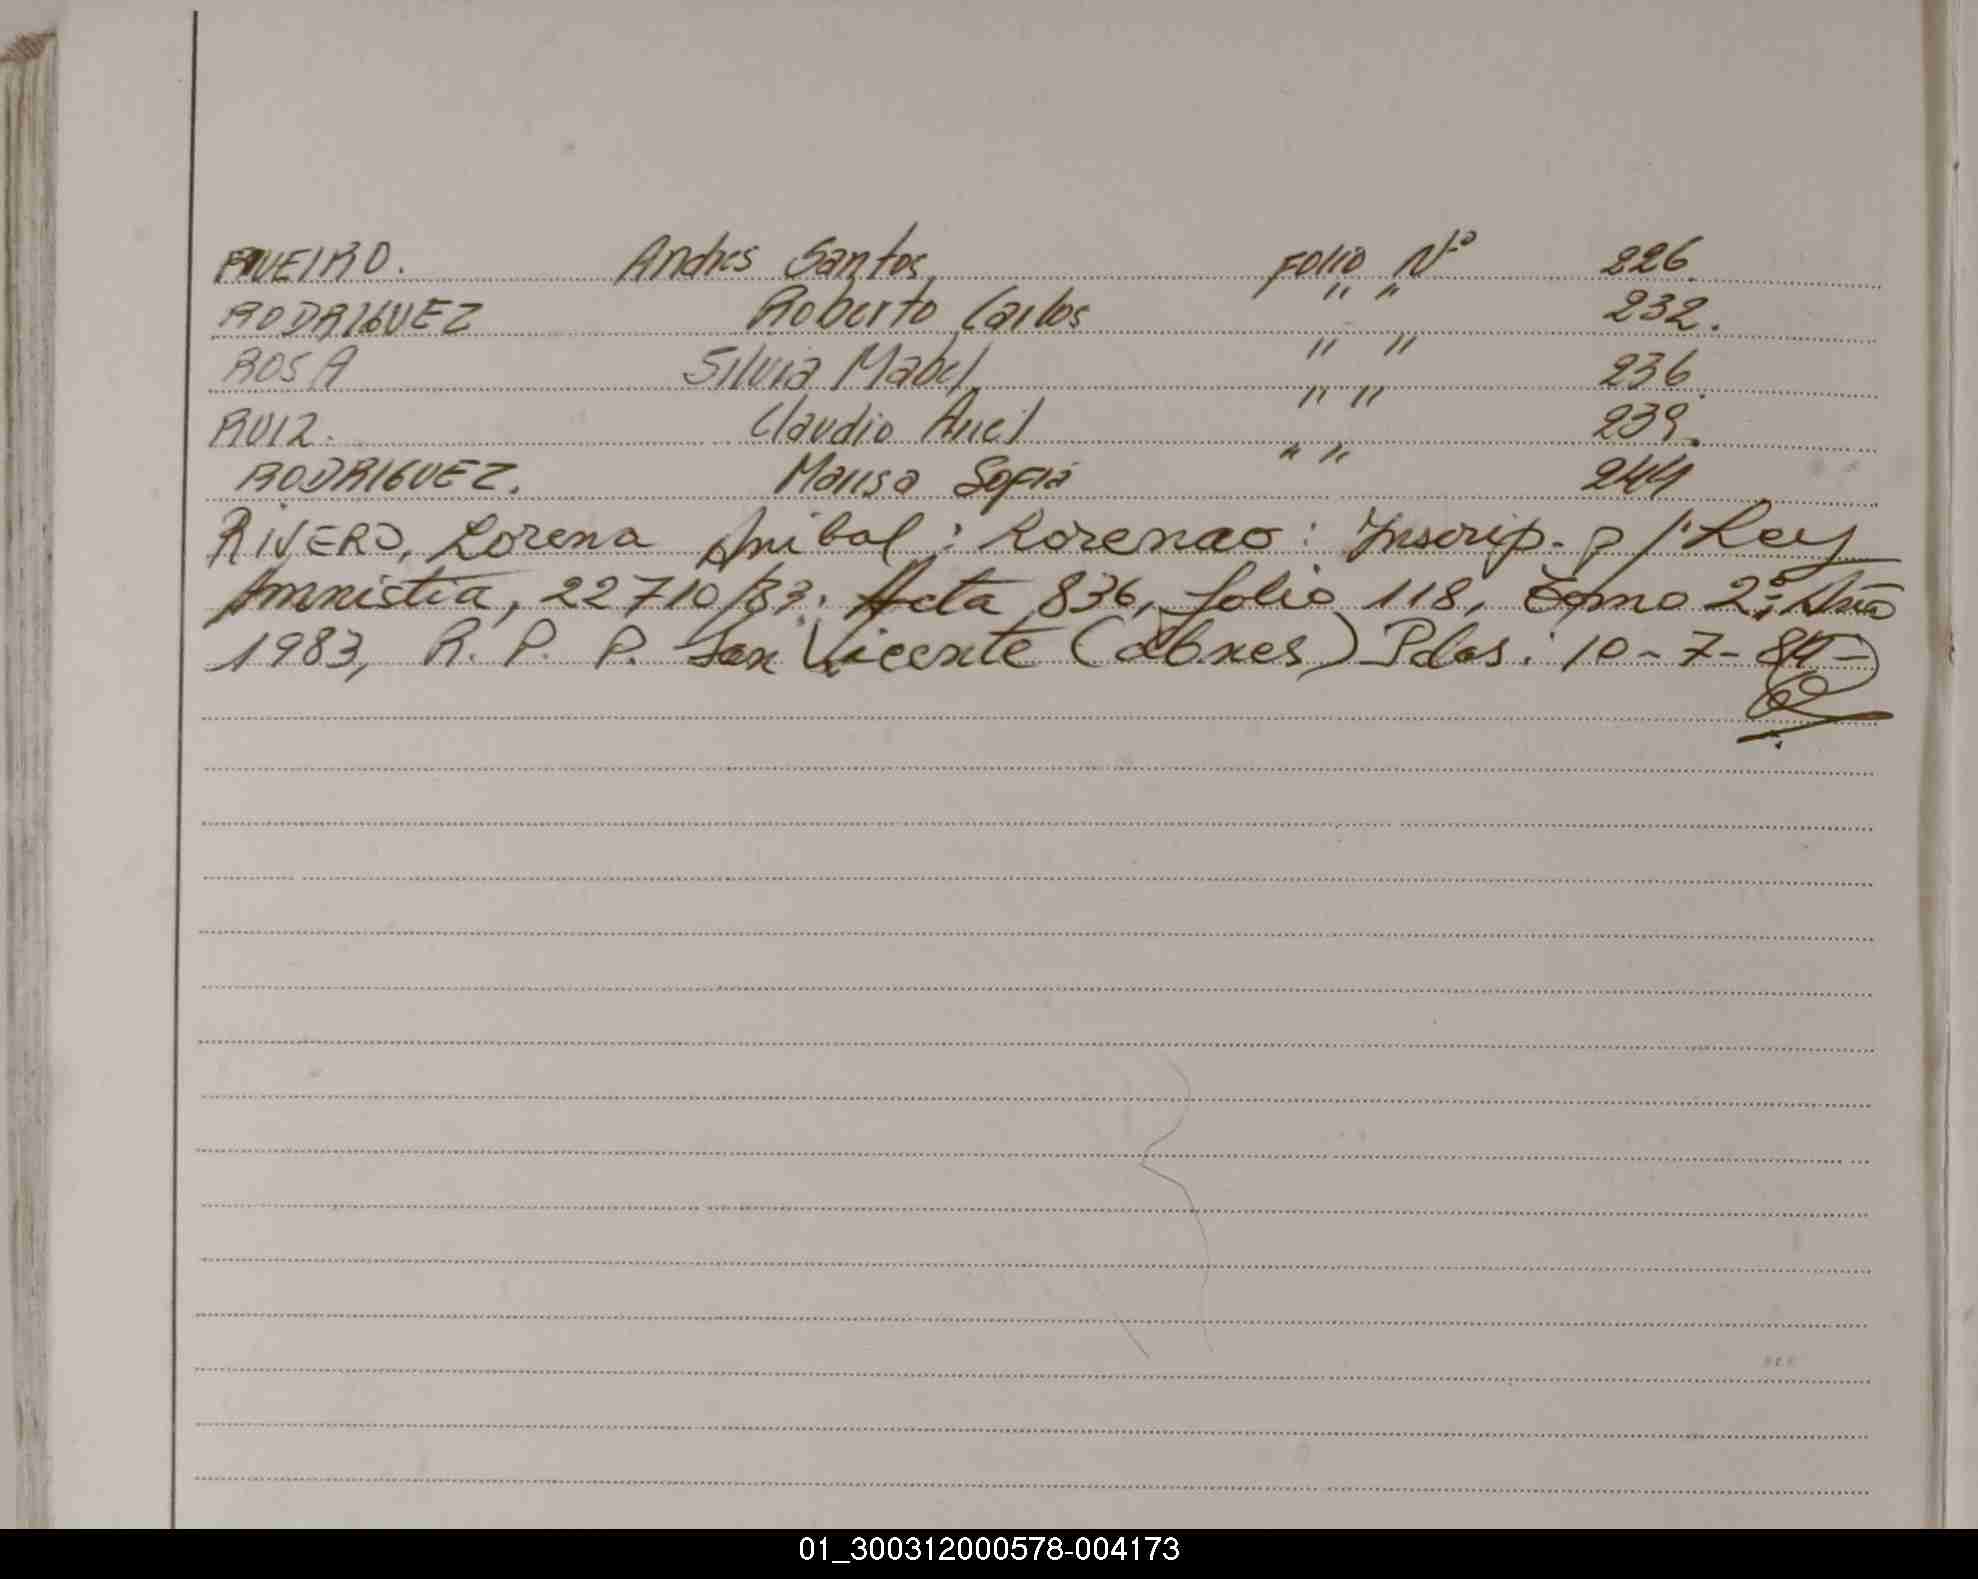 RIVEIRO. Andres Santos, Folio Nº 226.
RODRIGUEZ Roberto Carlos " " 232.
ROSA Silvia Mabel, " " 236.
RUIZ. Claudio Ariel " " 239.
RODRIGUEZ. Marisa Sofia " " 244
RIVERO, Lorena Anibal: Lorenao: Inscrip. p/ Ley
Amnistia, 22710/83. Acta 836, folio 118, Tomo 2º, Año
1983, R. P. P. San Vicente ( ) Pdas. 10-7-84-
01_300312000578-004173